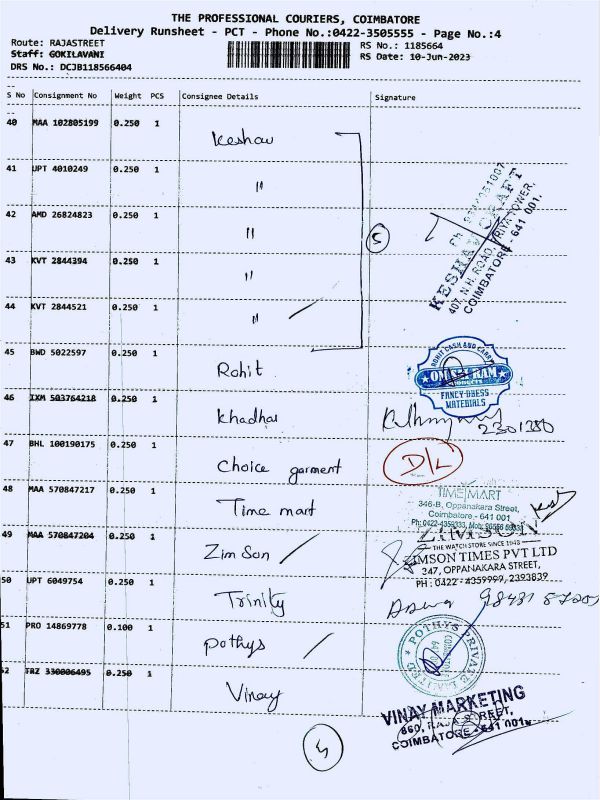 THE PROFESSIONAL COURIERS, COIMBATORE
Delivery Runsheet - PCT - Phone No.:0422-3505555 - Page No.:4
Route: RAJASTREET
Staff: GOKILAVANI
DRS No.: DCJB118566404
RS No.: 1185664
RS Date: 10-Jun-2023
S No Consignment No Weight PCS Consignee Details Signature
40 MAA 102805199 0.250 1 Keshav
41 UPT 4010249 0.250 1 "
42 AMD 26824823 0.250 1 "
43 KVT 2844394 0.250 1 "
44 KVT 2844521 0.250 1 "
5
KESHAV CRAFT
407, N.H. ROAD,
COIMBATORE - 641 001.
45 BWD 5022597 0.250 1 Rohit
ROHIT CASH AND CARRY
PRODUCTS
FANCY DRESS
MATERIALS
46 IXM 503764218 0.250 1 Khadhar
2301280
47 BHL 100190175 0.250 1 Choice garment D/L
48 MAA 570847217 0.250 1 Time mart
TIME MART
346-B, Oppanakara Street,
Coimbatore - 641 001
49 MAA 570847204 0.250 1 Zim Son
ZIMSON
THE WATCH STORE SINCE 1948
ZIMSON TIMES PVT LTD
347, OPPANAKARA STREET,
PH : 0422 - 4359999, 2393839
50 UPT 6049754 0.250 1 Trinity
51 PRO 14869778 0.100 1 Pothys
POTHYS PRIVATE LIMITED
52 TRZ 330006495 0.250 1 Vinay
VINAY MARKETING
860, RAJA STREET,
COIMBATORE - 641 001.
5